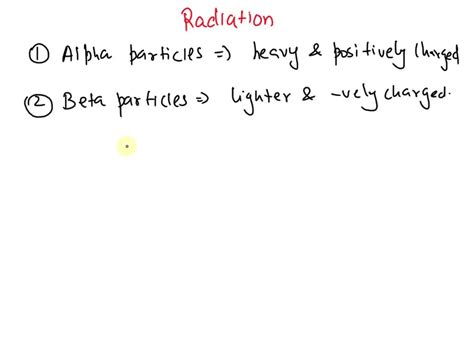 Radiation
① Alpha particles => heavy & positively charged
② Beta particles => lighter & -vely charged.